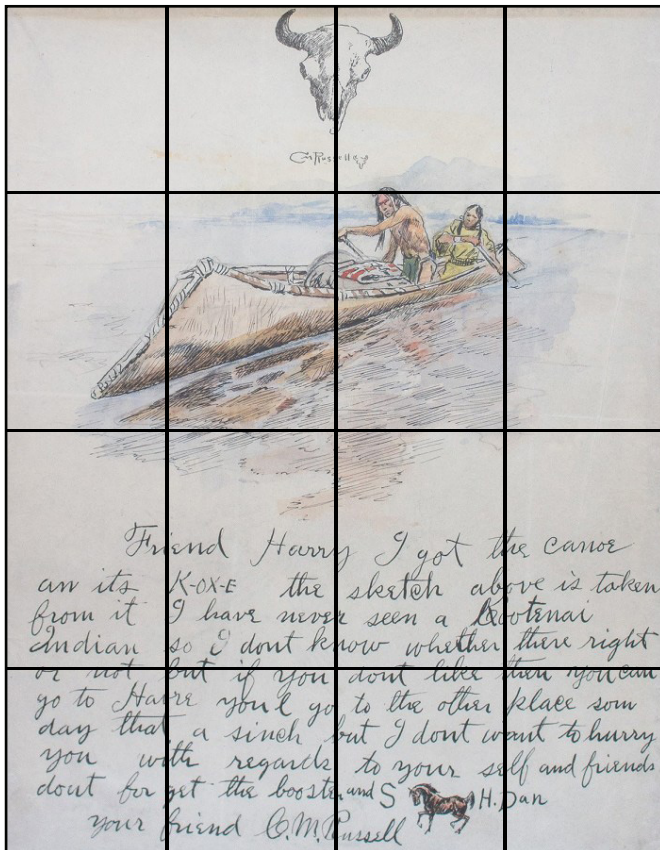 CM Russell
Friend Harry I got the canoe
an its K-OX-E the sketch above is taken
from it I have never seen a Kootenai
Indian so I dont know whether there right
or not but if you dont like them you can
go to Havre youl go to the other place som
day that a sinch but I dont want to hurry
you with regards to your self and friends
dont for get the booster and S H. Dan
your friend C.M. Russell